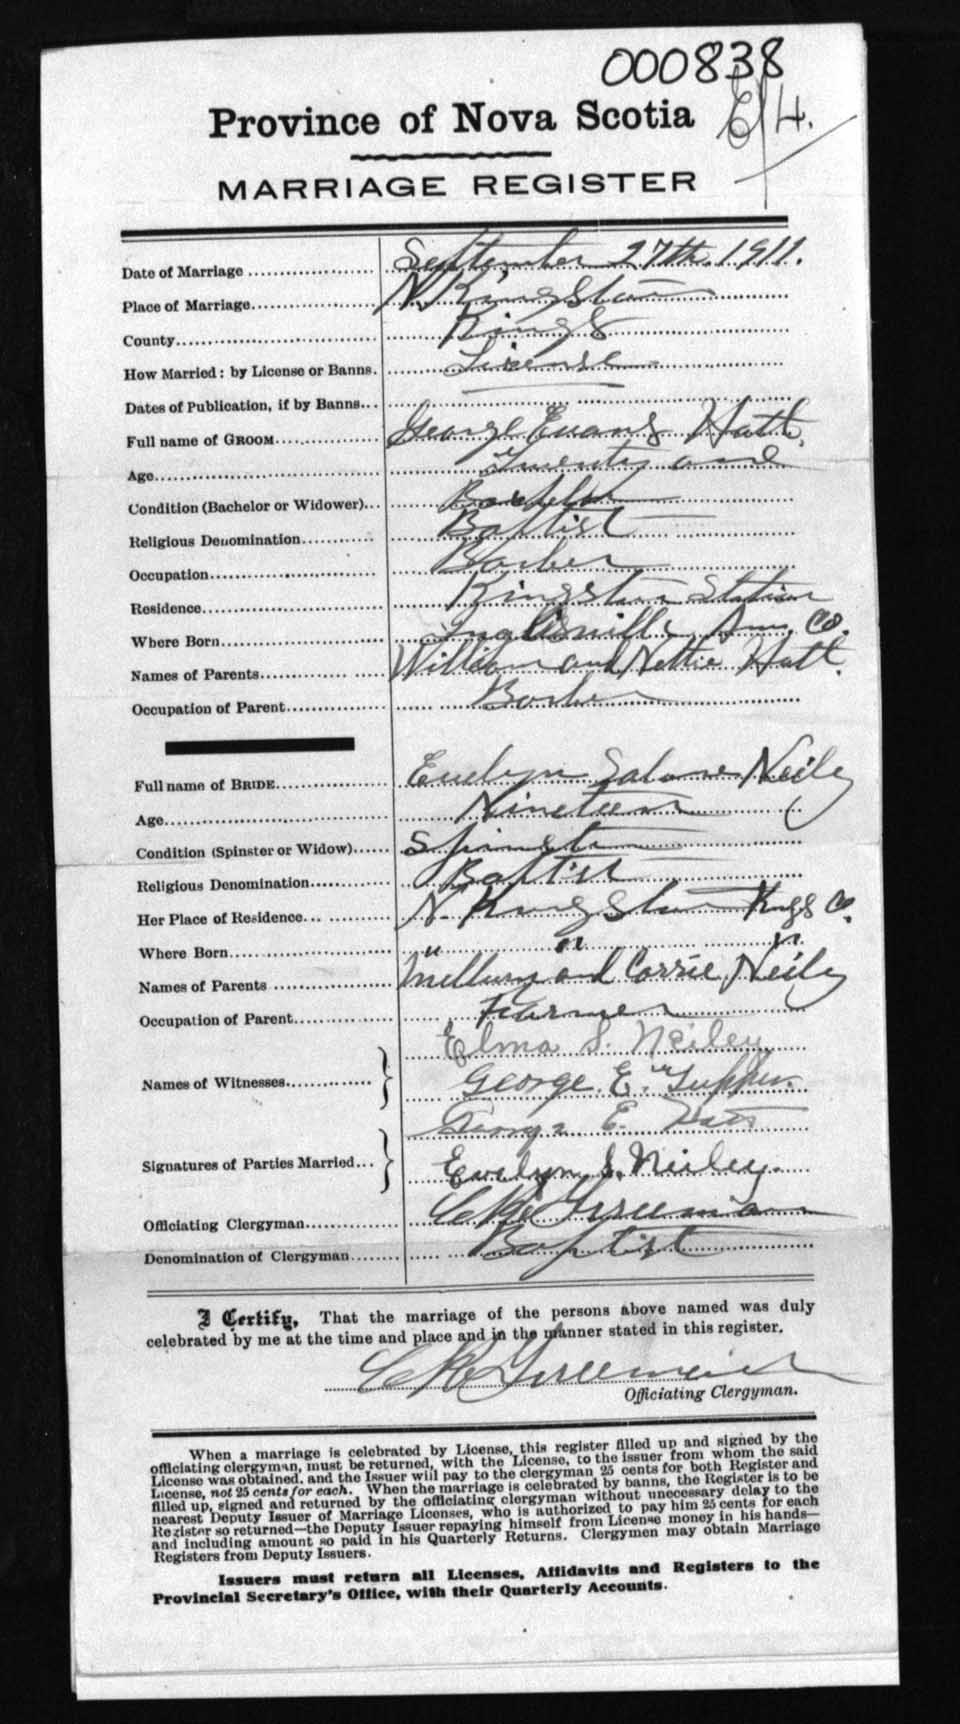 000838
Province of Nova Scotia
MARRIAGE REGISTER
Date of Marriage September 27th. 1911.
Place of Marriage N. Kingston
County Kings
How Married: by License or Banns. License
Dates of Publication, if by Banns...
Full name of GROOM George Evans Hatt.
Age Twenty one
Condition (Bachelor or Widower)... Bachelor
Religious Denomination Baptist
Occupation Barber
Residence Kingston Station
Where Born Inglisville, Ann. Co.
Names of Parents William and Nettie Hatt.
Occupation of Parent Barber
Full name of BRIDE Evelyn Neily
Age Nineteen
Condition (Spinster or Widow) Spinster
Religious Denomination Baptist
Her Place of Residence N. Kingston Kings Co.
Where Born " " "
Names of Parents and Carrie Neily
Occupation of Parent Farmer
Elma S. Neiley
Names of Witnesses George E. Tupper.
George E. Hatt
Signatures of Parties Married... Evelyn S. Neiley.
Officiating Clergyman Freeman
Denomination of Clergyman Baptist
I Certify, That the marriage of the persons above named was duly
celebrated by me at the time and place and in the manner stated in this register.
Freeman
Officiating Clergyman.
When a marriage is celebrated by License, this register filled up and signed by the
officiating clergyman, must be returned, with the License, to the issuer from whom the said
License was obtained, and the Issuer will pay to the clergyman 25 cents for both Register and
License, not 25 cents for each. When the marriage is celebrated by banns, the Register is to be
filled up, signed and returned by the officiating clergyman without unnecessary delay to the
nearest Deputy Issuer of Marriage Licenses, who is authorized to pay him 25 cents for each
Register so returned—the Deputy Issuer repaying himself from License money in his hands—
and including amount so paid in his Quarterly Returns. Clergymen may obtain Marriage
Registers from Deputy Issuers.
Issuers must return all Licenses, Affidavits and Registers to the
Provincial Secretary's Office, with their Quarterly Accounts.